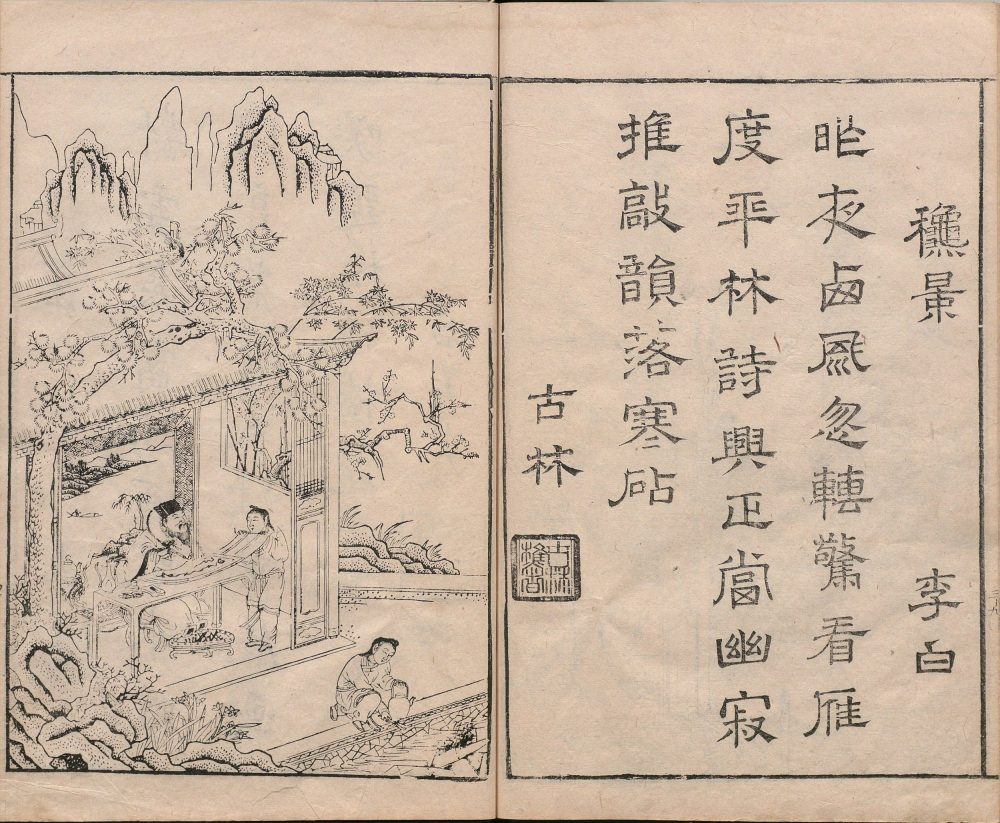 龝景 李白
昨夜西風忽轉驚看雁
度平林詩興正當幽寂
推敲韻落寒砧
古林